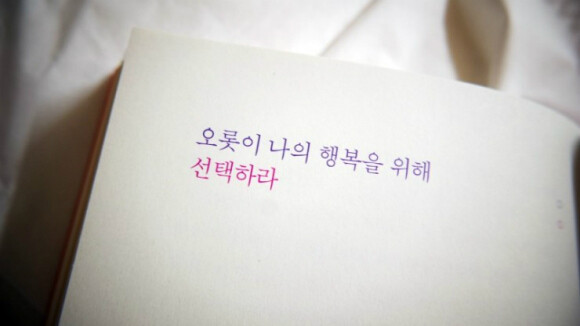 오롯이 나의 행복을 위해
선택하라